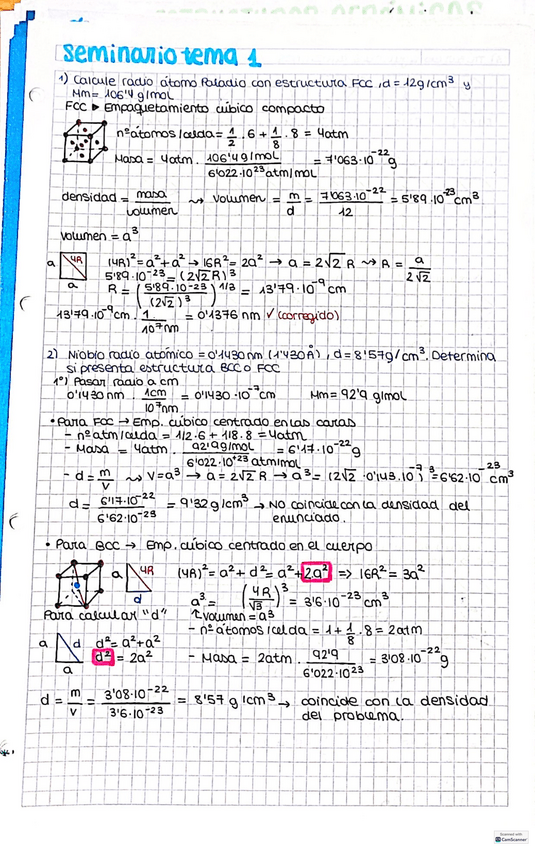 Seminario tema 1
1) Calcule radio átomo Paladio con estructura FCC, d = 12g/cm³ y
Mm = 106'4 g/mol
FCC ▸ Empaquetamiento cúbico compacto
nº átomos/celda = 1/2 · 6 + 1/8 · 8 = 4atm
Masa = 4atm · 106'4 g/mol / 6'022·10²³ atm/mol = 7'063·10⁻²² g
densidad = masa / volumen ⇝ volumen = m/d = 7'063·10⁻²² / 12 = 5'89·10⁻²³ cm³
Volumen = a³
a 4R a
(4R)² = a² + a² → 16R² = 2a² → a = 2√2 R ⇝ R = a / 2√2
5'89·10⁻²³ = (2√2 R)³
R = (5'89·10⁻²³ / (2√2)³)^1/3 = 13'79·10⁻⁹ cm
13'79·10⁻⁹ cm · 1 / 10⁷ nm = 0'1376 nm ✓ (corregido)
2) Niobio radio atómico = 0'1430 nm (1'430Å), d = 8'57g/cm³. Determina
si presenta estructura BCC o FCC
1º) Pasar radio a cm
0'1430 nm · 1cm / 10⁷ nm = 0'1430·10⁻⁷ cm Mm = 92'9 g/mol
• Para FCC → Emp. cúbico centrado en las caras
- nº atm/celda = 1/2·6 + 1/8·8 = 4atm
- Masa = 4atm · 92'9g/mol / 6'022·10⁺²³ atm/mol = 6'17·10⁻²² g
- d = m/v ⇝ V = a³ → a = 2√2 R → a³ = (2√2 · 0'143·10⁻⁷)³ = 6'62·10⁻²³ cm³
d = 6'17·10⁻²² / 6'62·10⁻²³ = 9'32 g/cm³ → No coincide con la densidad del
enunciado.
• Para BCC → Emp. cúbico centrado en el cuerpo
a 4R d
(4R)² = a² + d² = a² + 2a² ⇒ 16R² = 3a²
a³ = (4R / √3)³ = 3'6·10⁻²³ cm³
Para calcular "d"
volumen = a³
- nº átomos/celda = 1 + 1/8 · 8 = 2atm
a d a
d² = a² + a²
d² = 2a²
- Masa = 2atm · 92'9 / 6'022·10²³ = 3'08·10⁻²² g
d = m/v = 3'08·10⁻²² / 3'6·10⁻²³ = 8'57 g/cm³ → coincide con la densidad
del problema.
Scanned with
CamScanner